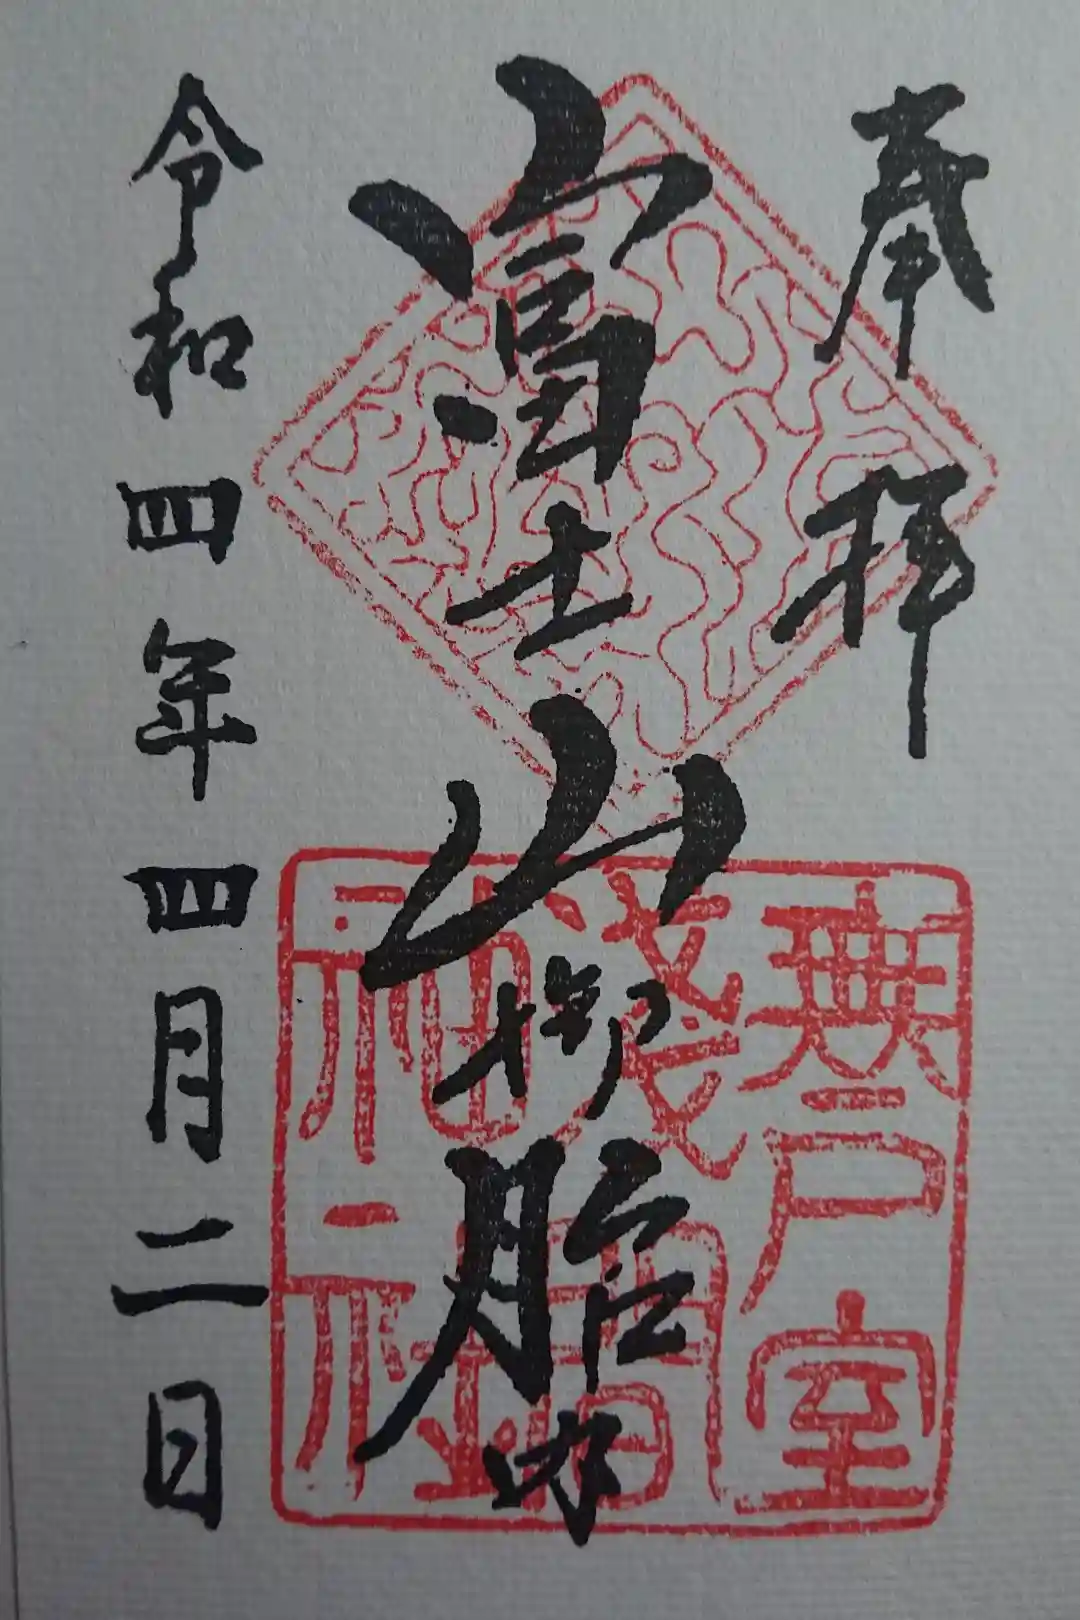 奉拝
富士山御胎内
無戸室
浅間
神社
令和四年四月二日